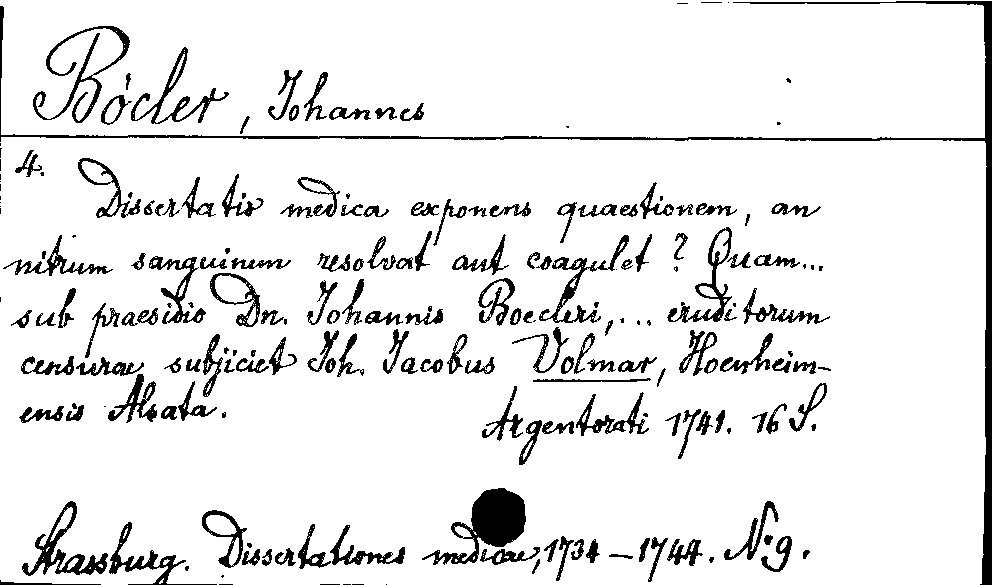 Böcler, Johannes
4.
Dissertatio medica exponens quaestionem, an
nitrum sanguinem resolvat aut coagulet? Quam...
sub praesidio Dn. Johannis Boecleri,... eruditorum
censurae subjiciet Joh. Jacobus Volmar, Hoenheim-
ensis Alsata.
Argentorati 1741. 16 S.
Strassburg. Dissertationes medicae, 1734-1744. No 9.